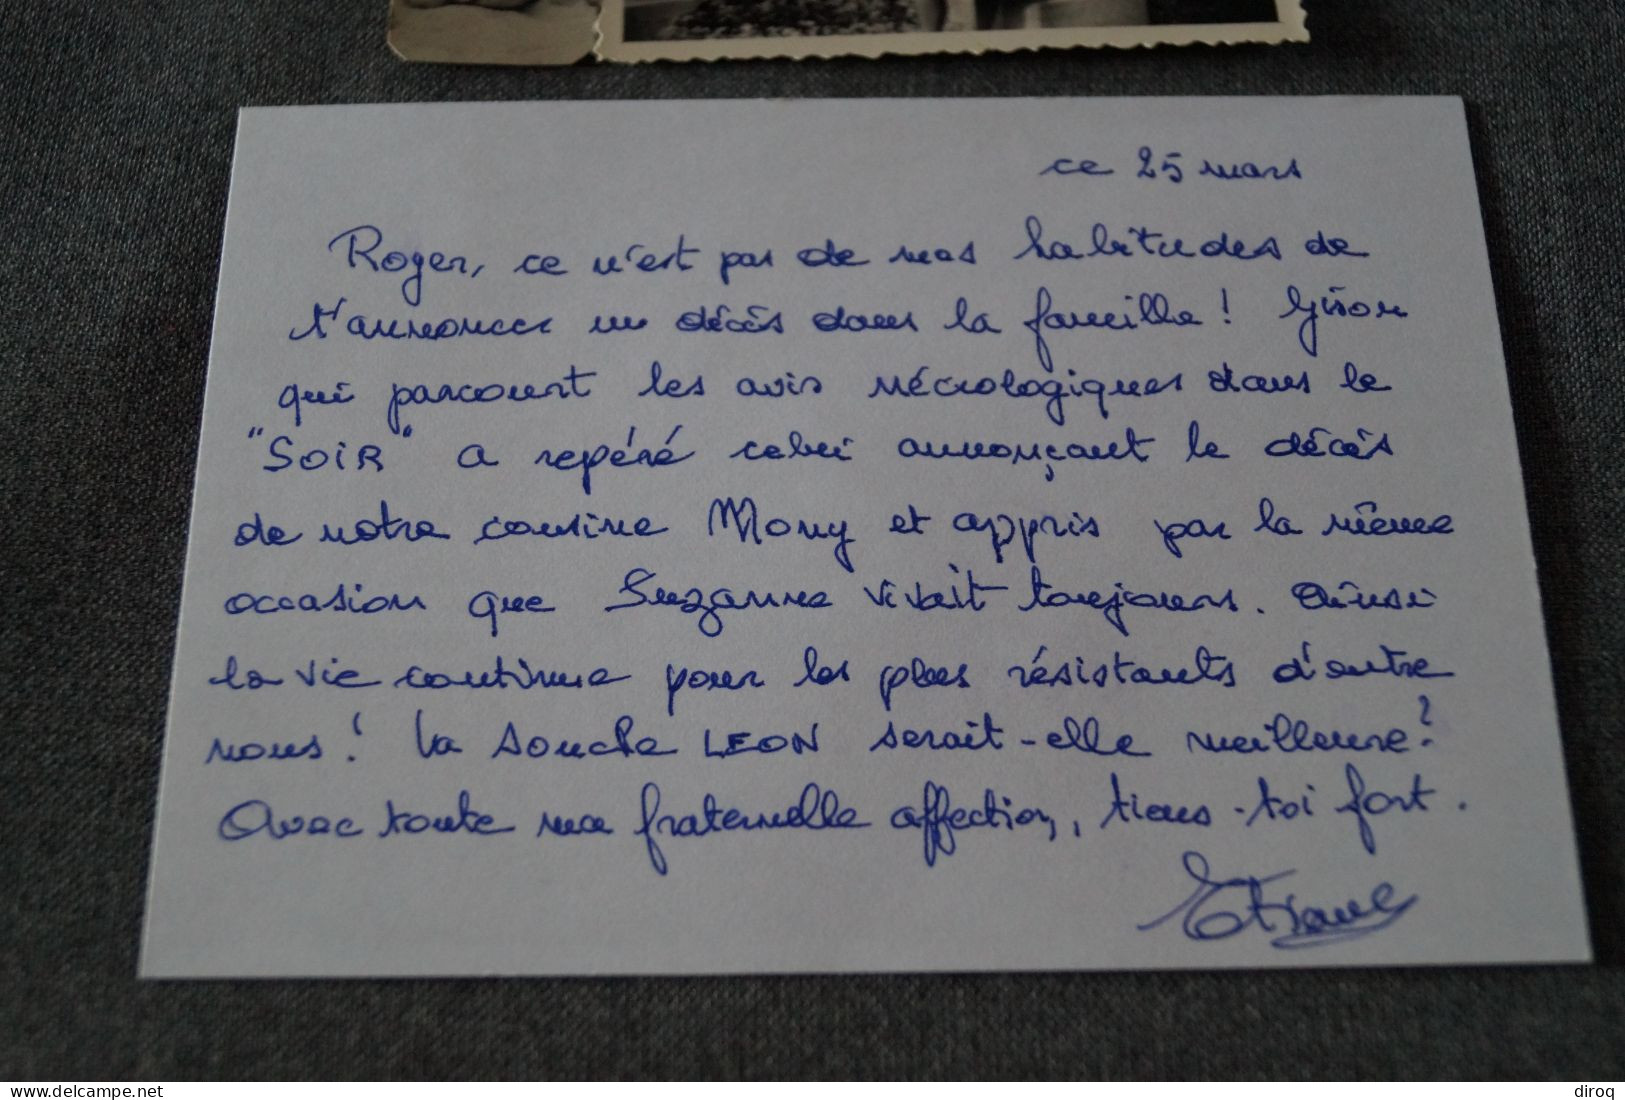 ce 25 mars
Roger, ce n'est pas de mes habitudes de
t'annoncer un décès dans la famille !
qui parcourt les avis nécrologiques dans le
"SOIR" a repéré celui annonçant le décès
de notre cousine Mony et appris par la même
occasion que Suzanne vivait toujours. Ainsi
la vie continue pour les plus résistants d'entre
nous ! La souche LEON serait-elle meilleure ?
Avec toute ma fraternelle affection, tiens-toi fort.
delcampe.net
diroq